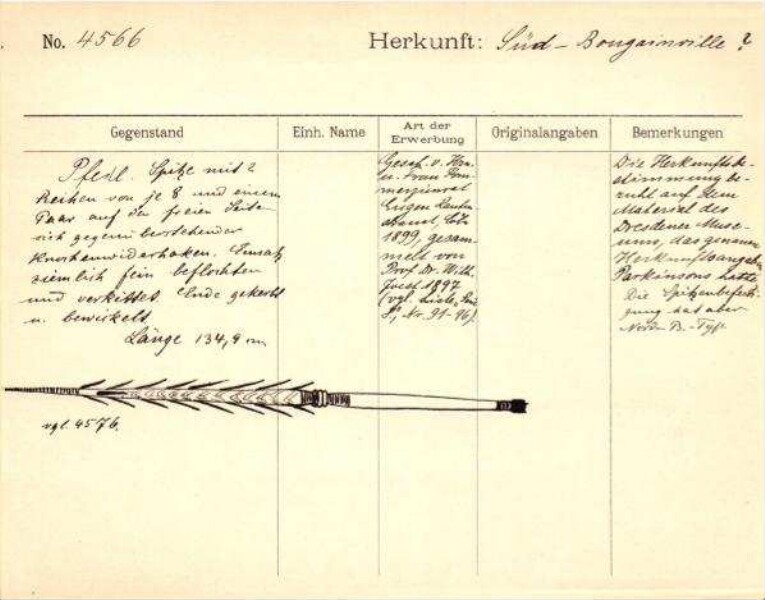 No. 4566 Herkunft: Süd-Bougainville ?
Gegenstand
Einh. Name
Art der
Erwerbung
Originalangaben
Bemerkungen
Pfeil. Spitze mit 2
Reihen von je 8 und einem
Paar auf den freien Seiten
sich gegenüberstehender
Knochenwiderhaken. Einsatz
ziemlich fein beflochten
und verkittet. Ende gekerbt
u. bewickelt
Länge 134,9 cm
vgl. 4576.
Gesch. v. Hrn.
u. Frau Kom-
merzienrat
Eugen Rauten-
strauch, Cöln
1899, gesam-
melt von
Prof. Dr. Wilh.
Joest 1897
(vgl. Liste
Nr. 91-96)
Die Herkunftsbe-
stimmung be-
ruht auf dem
Material des
Dresdener Muse-
ums, das genaue
Herkunftsangaben
Parkinsons hatte
Die Spitzenbefesti-
gung hat aber
Nord-B.-Typ